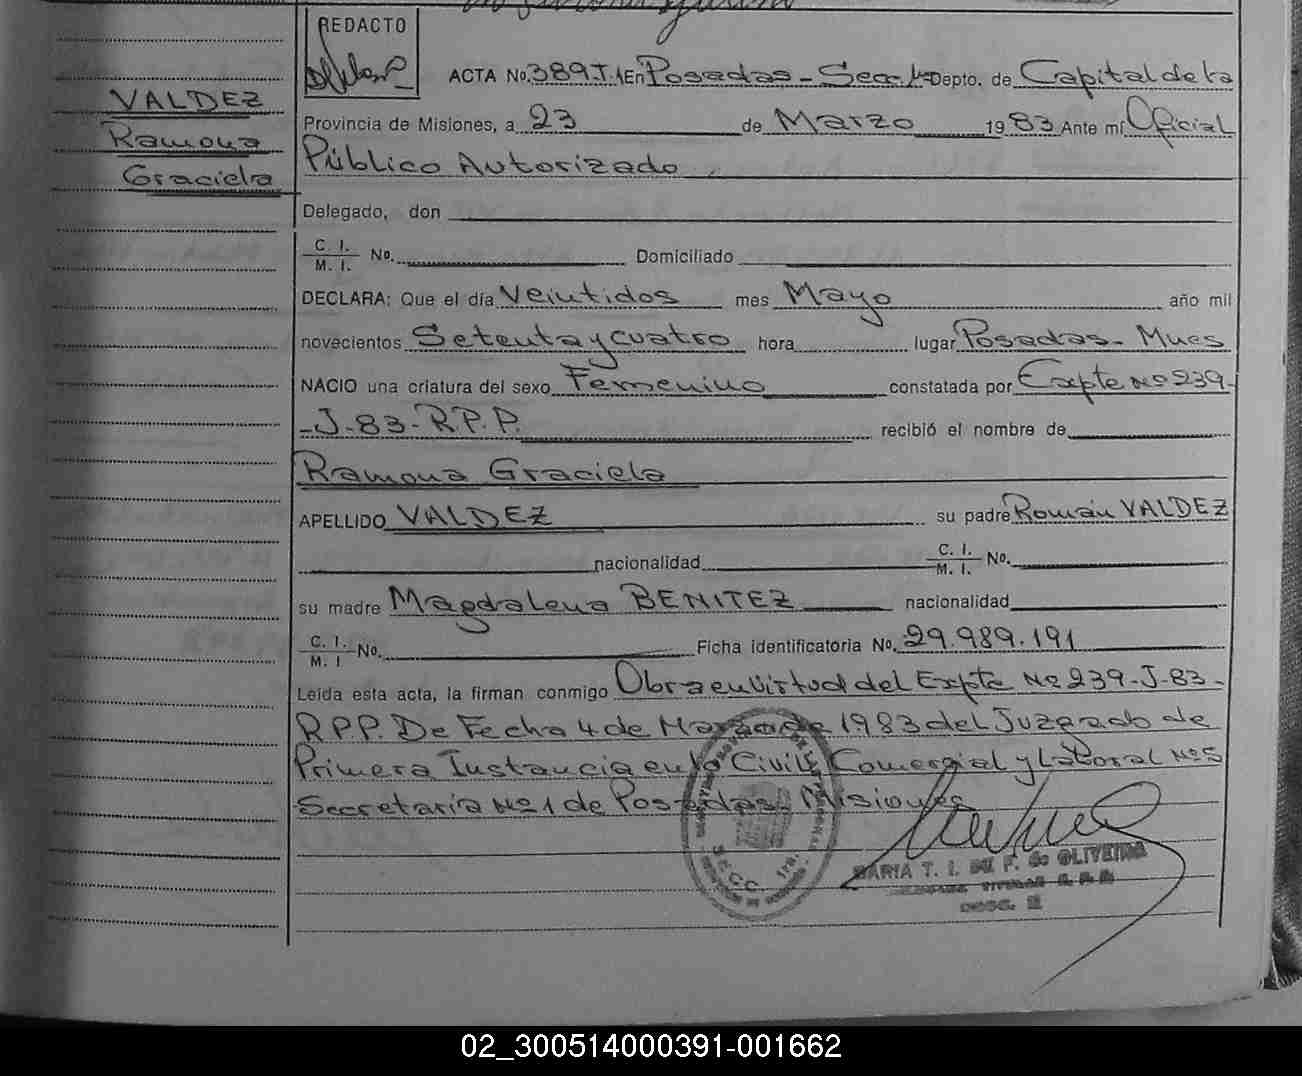 REDACTO
VALDEZ
Ramona
Graciela
ACTA No. 389.T.1 En Posadas - Secc. 1º Depto. de Capital de la
Provincia de Misiones, a 23 de Marzo 1983 Ante mí Oficial
Público Autorizado
Delegado, don
C. I.
M. I. No. Domiciliado
DECLARA: Que el día Veintidos mes Mayo año mil
novecientos Setenta y cuatro hora lugar Posadas - Mnes
NACIO una criatura del sexo Femenino constatada por Expte Nº 239-
-J-83-R.P.P. recibió el nombre de
Ramona Graciela
APELLIDO VALDEZ su padre Román VALDEZ
nacionalidad C. I.
M. I. No.
su madre Magdalena BENITEZ nacionalidad
C. I.
M. I No. Ficha identificatoria No. 29.989.191
Leída esta acta, la firman conmigo Obra en Virtud del Expte Nº 239-J-83-
R.P.P. De Fecha 4 de Marzo de 1983 del Juzgado de
Primera Instancia en lo Civil, Comercial y Laboral Nº 5
Secretaría Nº 1 de Posadas, Misiones
MARIA T. I. DE F. de OLIVEIRA
02_300514000391-001662